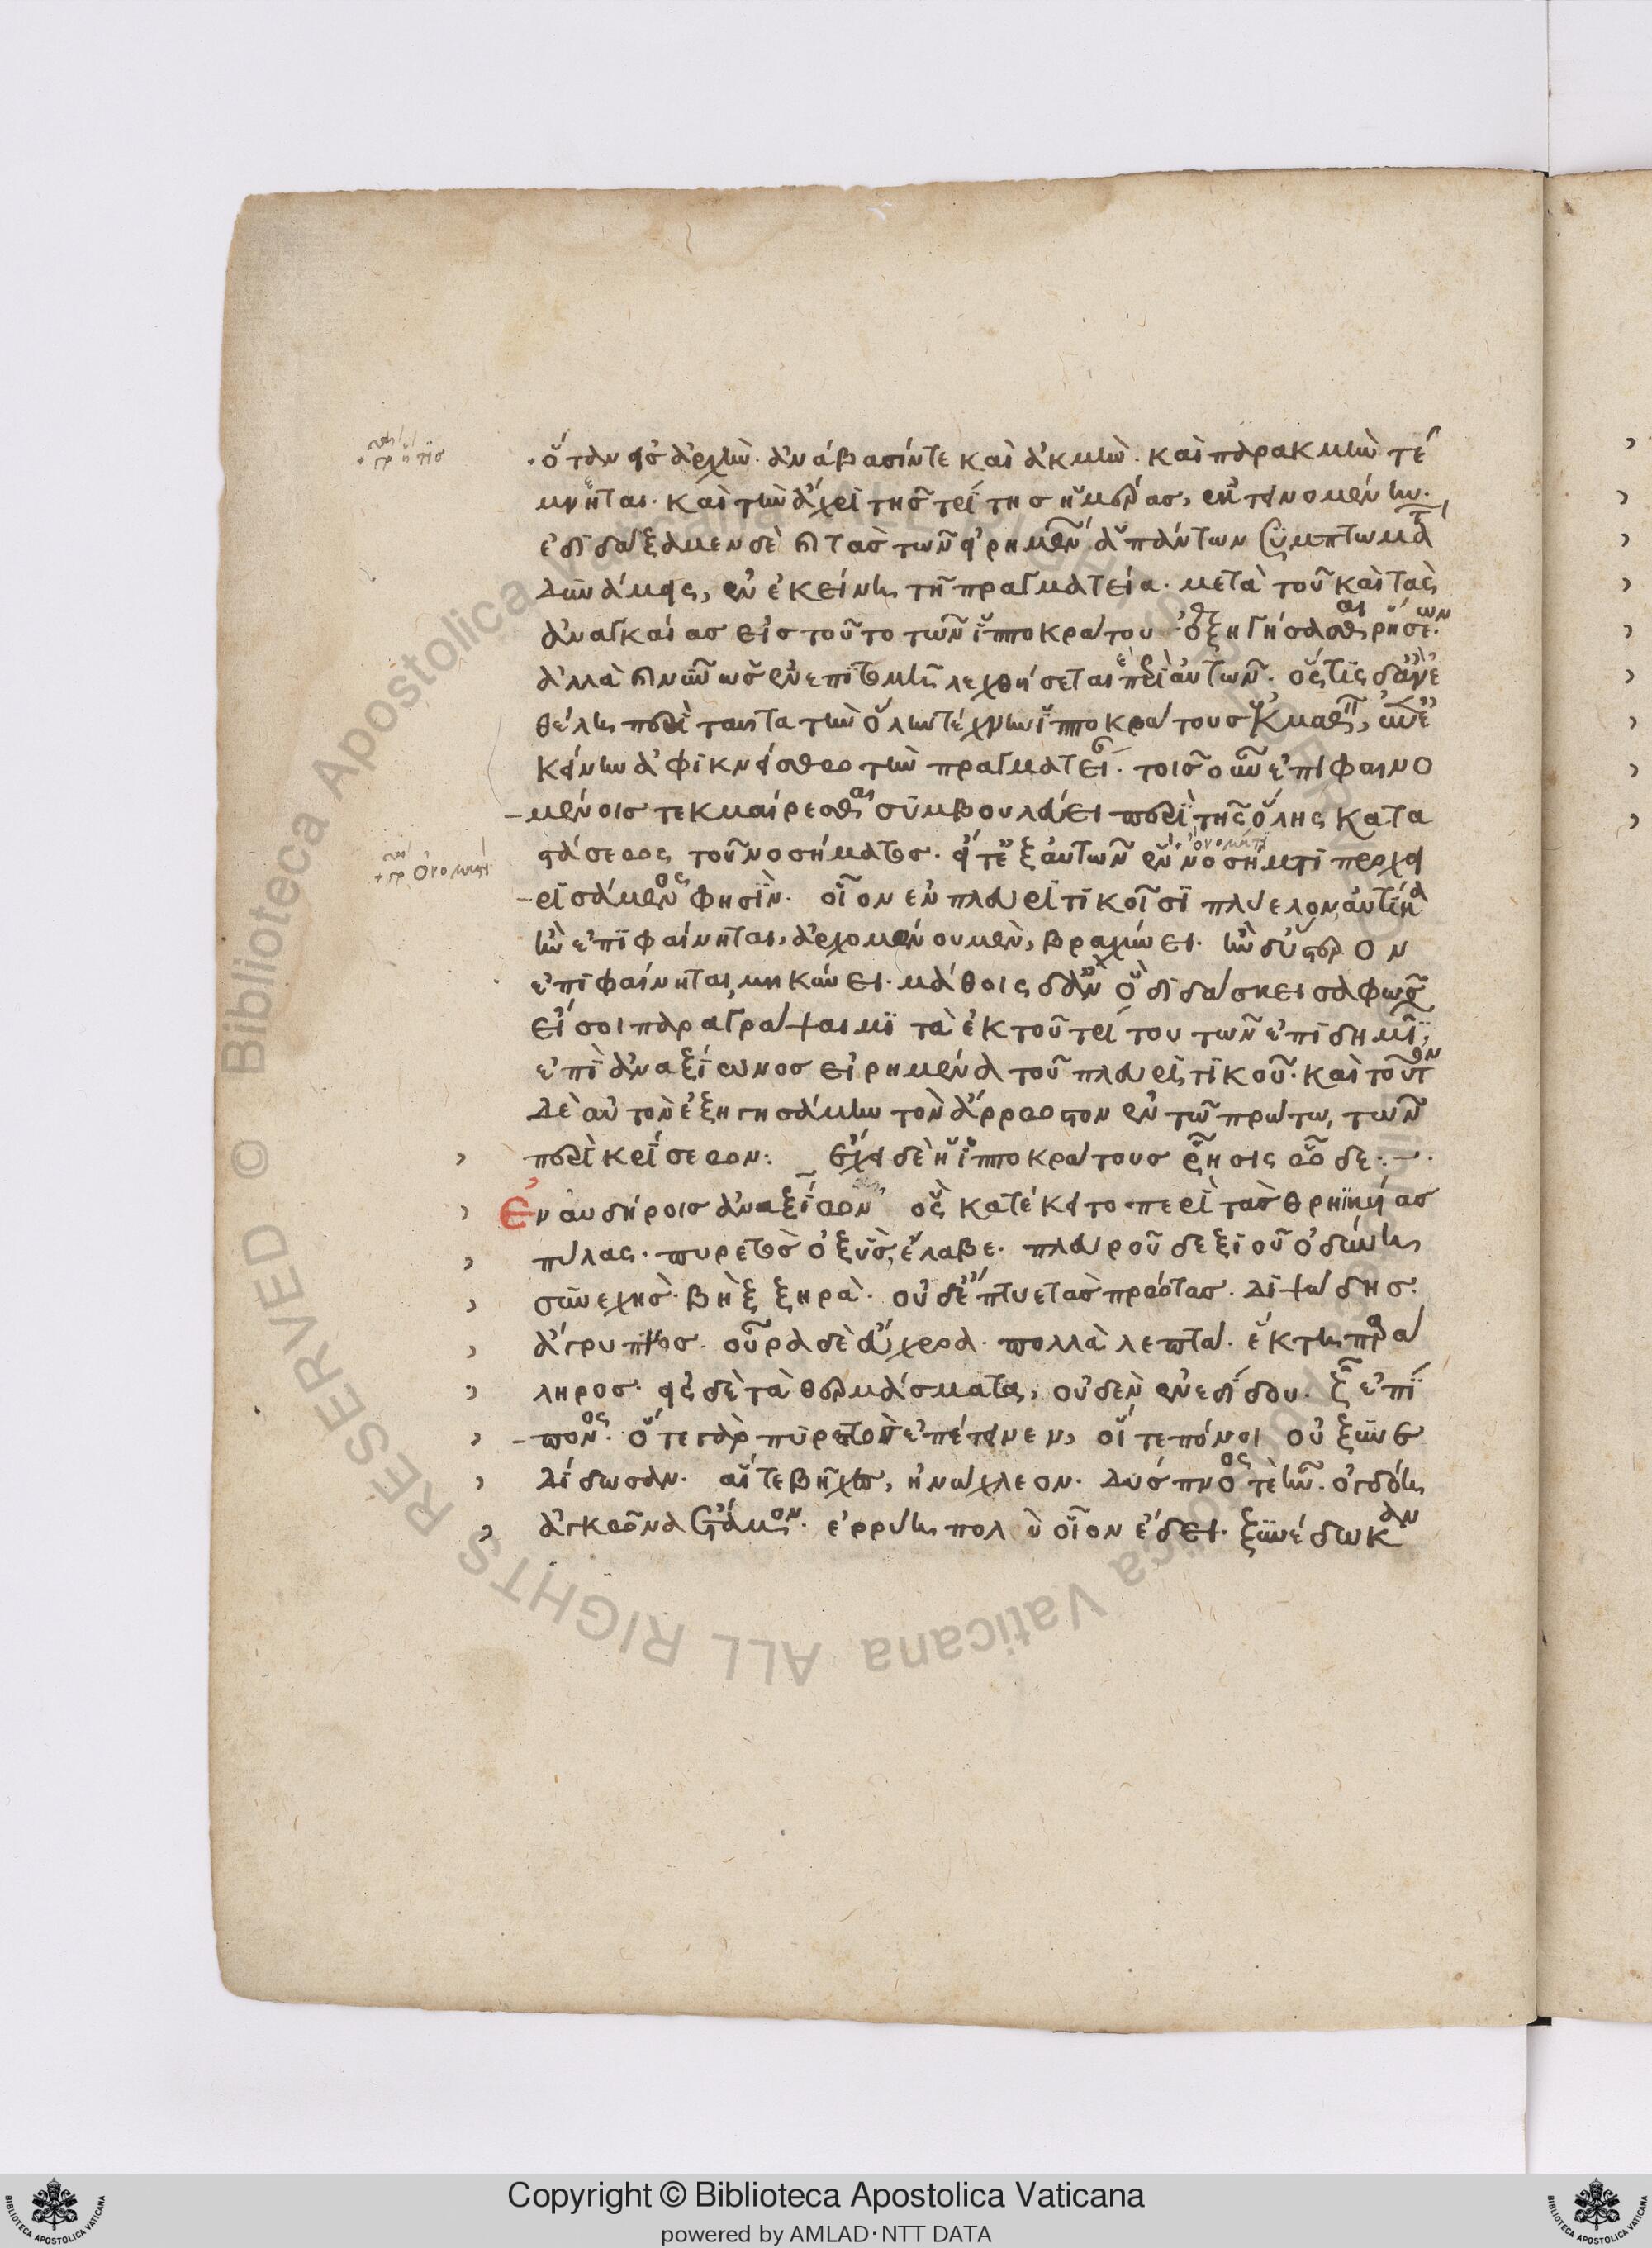 ὅταν εἰς ἀρχὴν. ἀνάβασίν τε καὶ ἀκμὴν. καὶ παρακμὴν τέ
μνηται. καὶ τὴν ἄχρι τῆς τρίτης ἡμέρας, ἐκτεινομένην.
ἐδιδάξαμεν δὲ τὰς τῶν εἰρημένων ἁπάντων συμπτωμάτ
δυνάμεις, ἐν ἐκείνῃ τῇ πραγματεία. μετὰ τοῦ καὶ τὰς
ἀναγκαίας εἰς τοῦτο τῶν ἱπποκράτου ἐξηγήσασθαι ῥήσεων.
ἀλλὰ νῦν ὡς ἐν ἐπιτομῇ λεχθήσεται περὶ αὐτῶν. ὅστις δ' ἂν ἐ
θέλῃ περὶ ταῦτα τὴν ὅλην τέχνην ἱπποκράτους ἐκμαθεῖν, ἐπ' ἐ
κείνην ἀφικνείσθω τὴν πραγματεί. τοῖς οὖν ἐπιφαινο
μένοις τεκμαίρεσθαι συμβουλεύει περὶ τῆς ὅλης κατα
στάσεως τοῦ νοσήματος. εἶτ' ἐξ αὐτῶν ἓν νοσήματι προχει
ρισάμενος φησὶν. οἷον ἐν πλευριτικοῖσι πτύελον αὐτίκα
ἢν ἐπιφαίνηται, ἀρχομένου μὲν, βραχύνει. ἢν δ' ὕστερον
ἐπιφαίνηται, μηκύνει. μάθοις δ' ἂν ὃ διδάσκει σαφῶς
εἴ σοι παραγράψαιμι τὰ ἐκ τοῦ τρίτου τῶν ἐπιδημι,
ἐπὶ ἀναξίωνος εἰρημένα τοῦ πλευριτικοῦ. καὶ τοῦτον
δὲ αὐτὸν ἐξηγησάμην τὸν ἄρρωστον ἐν τῶ πρώτω, τῶν
περὶ κρίσεων: ἔχει δὲ ἡ ἱπποκράτους ῥῆσις ὧδε:
Ἐν ἀβδήροις ἀναξίων ὃς κατέκειτο περὶ τὰς θρηϊκίας
πύλας. πυρετὸς ὀξὺς, ἔλαβε. πλευροῦ δεξιοῦ ὀδύνη
συνεχὴς. βὴξ ξηρὰ. οὐδ' ἔπτυε τὰς πρώτας. διψώδης.
ἄγρυπνος. οὖρα δὲ εὔχροα. πολλὰ λεπτὰ. ἕκτῃ παρά
ληρος. εἰς δὲ τὰ θερμάσματα, οὐδὲν ἐνεδίδου. ζ ἐπί
πονος. ὅ τε γὰρ πυρετὸς ἐπέτεινεν, οἵ τε πόνοι οὐ ξυνε
δίδωσαν. αἵ τε βῆχες, ἠνώχλεον. δύσπνοος τὲ ἦν. ὀγδόῃ
ἀγκῶνα ἔταμον. ἐρρύη πολὺ οἷον ἔδει. ξυνέδωκαν